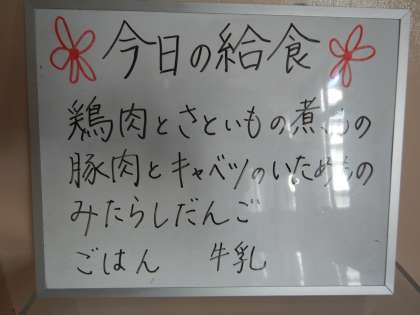 今日の給食
鶏肉とさといもの煮もの
豚肉とキャベツのいためもの
みたらしだんご
ごはん 牛乳